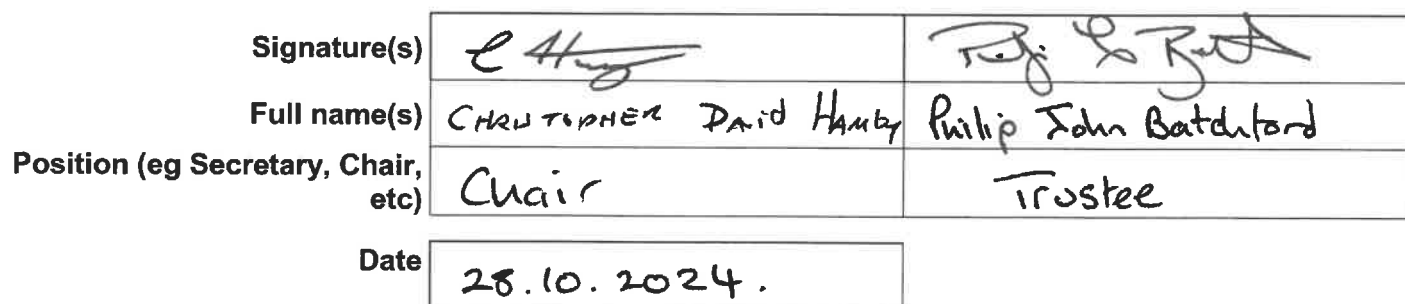 Signature(s)
Full name(s) CHRISTOPHER David Philip John Batchford
Position (eg Secretary, Chair,
etc) Chair Trustee
Date 28.10.2024.